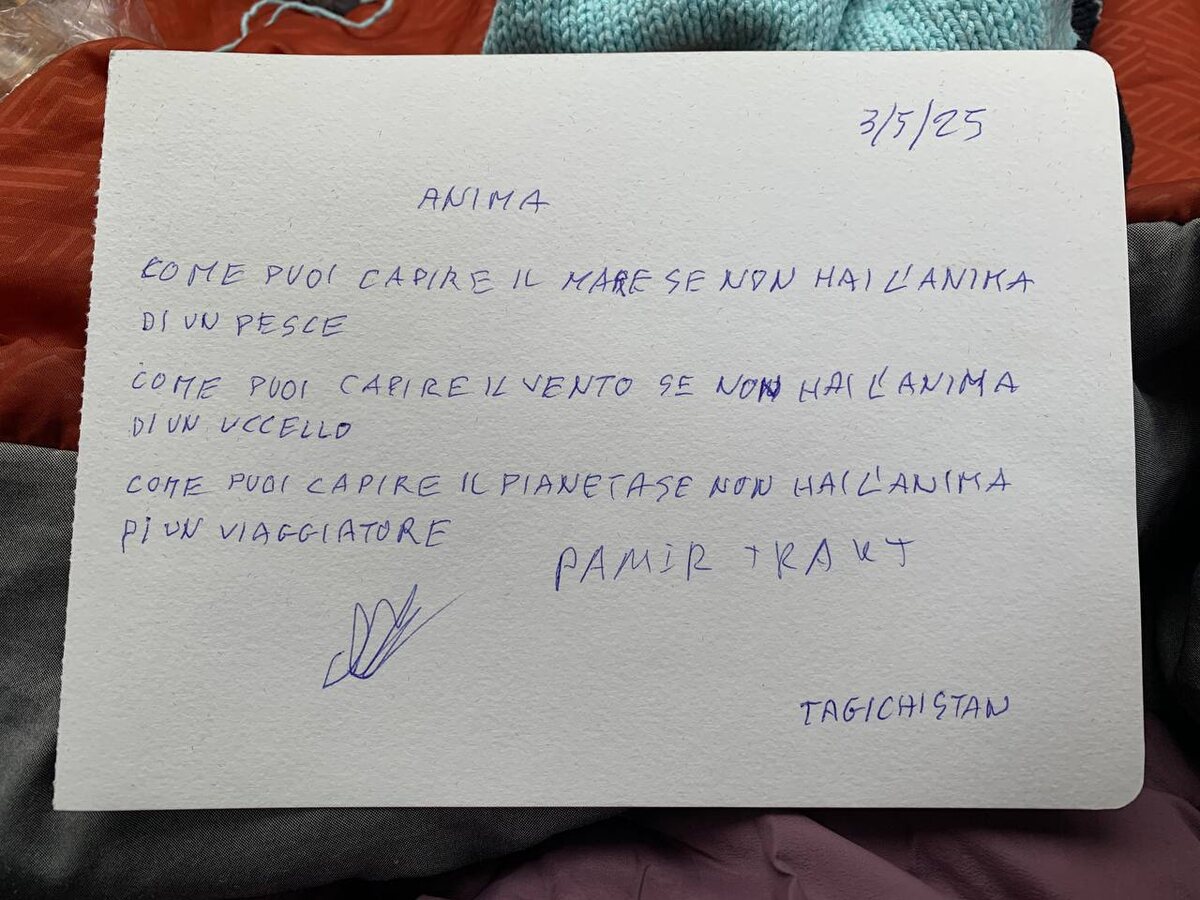 3/5/25
ANIMA
COME PUOI CAPIRE IL MARE SE NON HAI L'ANIMA
DI UN PESCE
COME PUOI CAPIRE IL VENTO SE NON HAI L'ANIMA
DI UN UCCELLO
COME PUOI CAPIRE IL PIANETA SE NON HAI L'ANIMA
DI UN VIAGGIATORE
PAMIR TRAKT
TAGICHISTAN